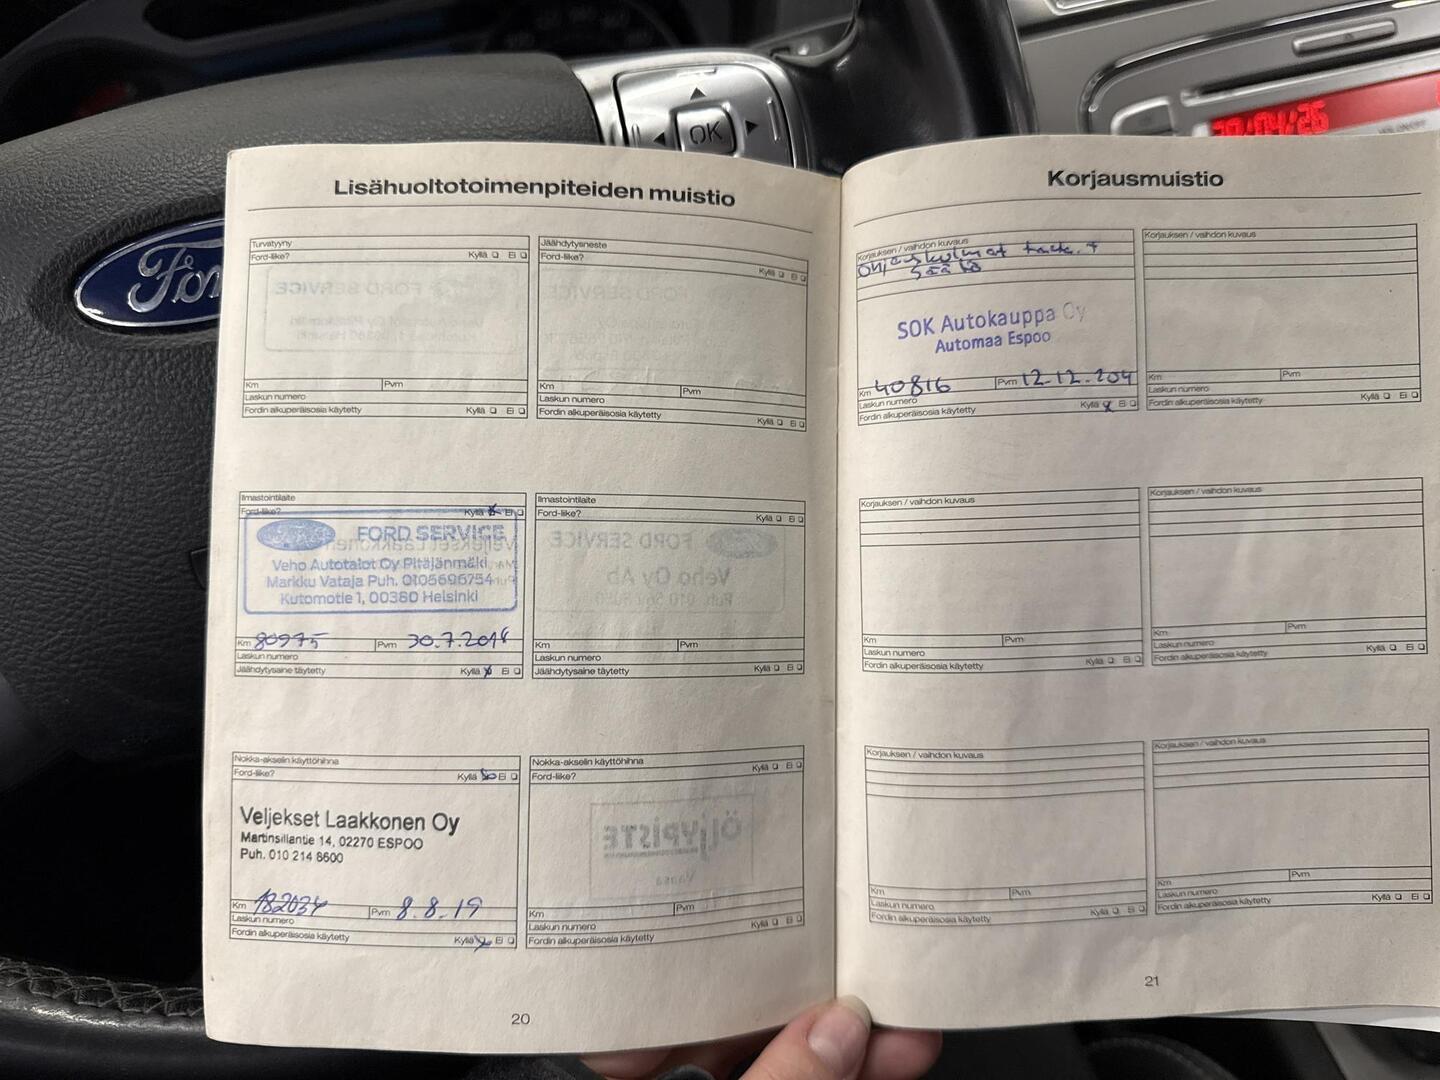 OK
Ford
Lisähuoltotoimenpiteiden muistio
Turvatyyny
Ford-liike? Kyllä Ei
Km Pvm
Laskun numero
Fordin alkuperäisosia käytetty Kyllä Ei
Jäähdytysneste
Ford-liike? Kyllä Ei
Km Pvm
Laskun numero
Fordin alkuperäisosia käytetty Kyllä Ei
Ilmastointilaite
Ford-liike? Kyllä Ei
FORD SERVICE
Veho Autotalot Oy Pitäjänmäki
Markku Vataja Puh. 0105696754
Kutomotie 1, 00380 Helsinki
Km 80975 Pvm 30.7.2014
Laskun numero
Jäähdytysaine täytetty Kyllä Ei
Ilmastointilaite
Ford-liike? Kyllä Ei
FORD SERVICE
Veho Oy Ab
Km Pvm
Laskun numero
Jäähdytysaine täytetty Kyllä Ei
Nokka-akselin käyttöhihna
Ford-liike? Kyllä Ei
Veljekset Laakkonen Oy
Martinsillantie 14, 02270 ESPOO
Puh. 010 214 8600
Km 182034 Pvm 8.8.19
Laskun numero
Fordin alkuperäisosia käytetty Kyllä Ei
Nokka-akselin käyttöhihna
Ford-liike? Kyllä Ei
ÖLJYPISTE
Vansa
Km Pvm
Laskun numero
Fordin alkuperäisosia käytetty Kyllä Ei
20
Korjausmuistio
Korjauksen / vaihdon kuvaus
Ohjauskulmat tark. +
säätö
SOK Autokauppa Oy
Automaa Espoo
Km 40816 Pvm 12.12.201
Laskun numero
Fordin alkuperäisosia käytetty Kyllä Ei
Korjauksen / vaihdon kuvaus
Km Pvm
Laskun numero
Fordin alkuperäisosia käytetty Kyllä Ei
Korjauksen / vaihdon kuvaus
Km Pvm
Laskun numero
Fordin alkuperäisosia käytetty Kyllä Ei
Korjauksen / vaihdon kuvaus
Km Pvm
Laskun numero
Fordin alkuperäisosia käytetty Kyllä Ei
Korjauksen / vaihdon kuvaus
Km Pvm
Laskun numero
Fordin alkuperäisosia käytetty Kyllä Ei
Korjauksen / vaihdon kuvaus
Km Pvm
Laskun numero
Fordin alkuperäisosia käytetty Kyllä Ei
21